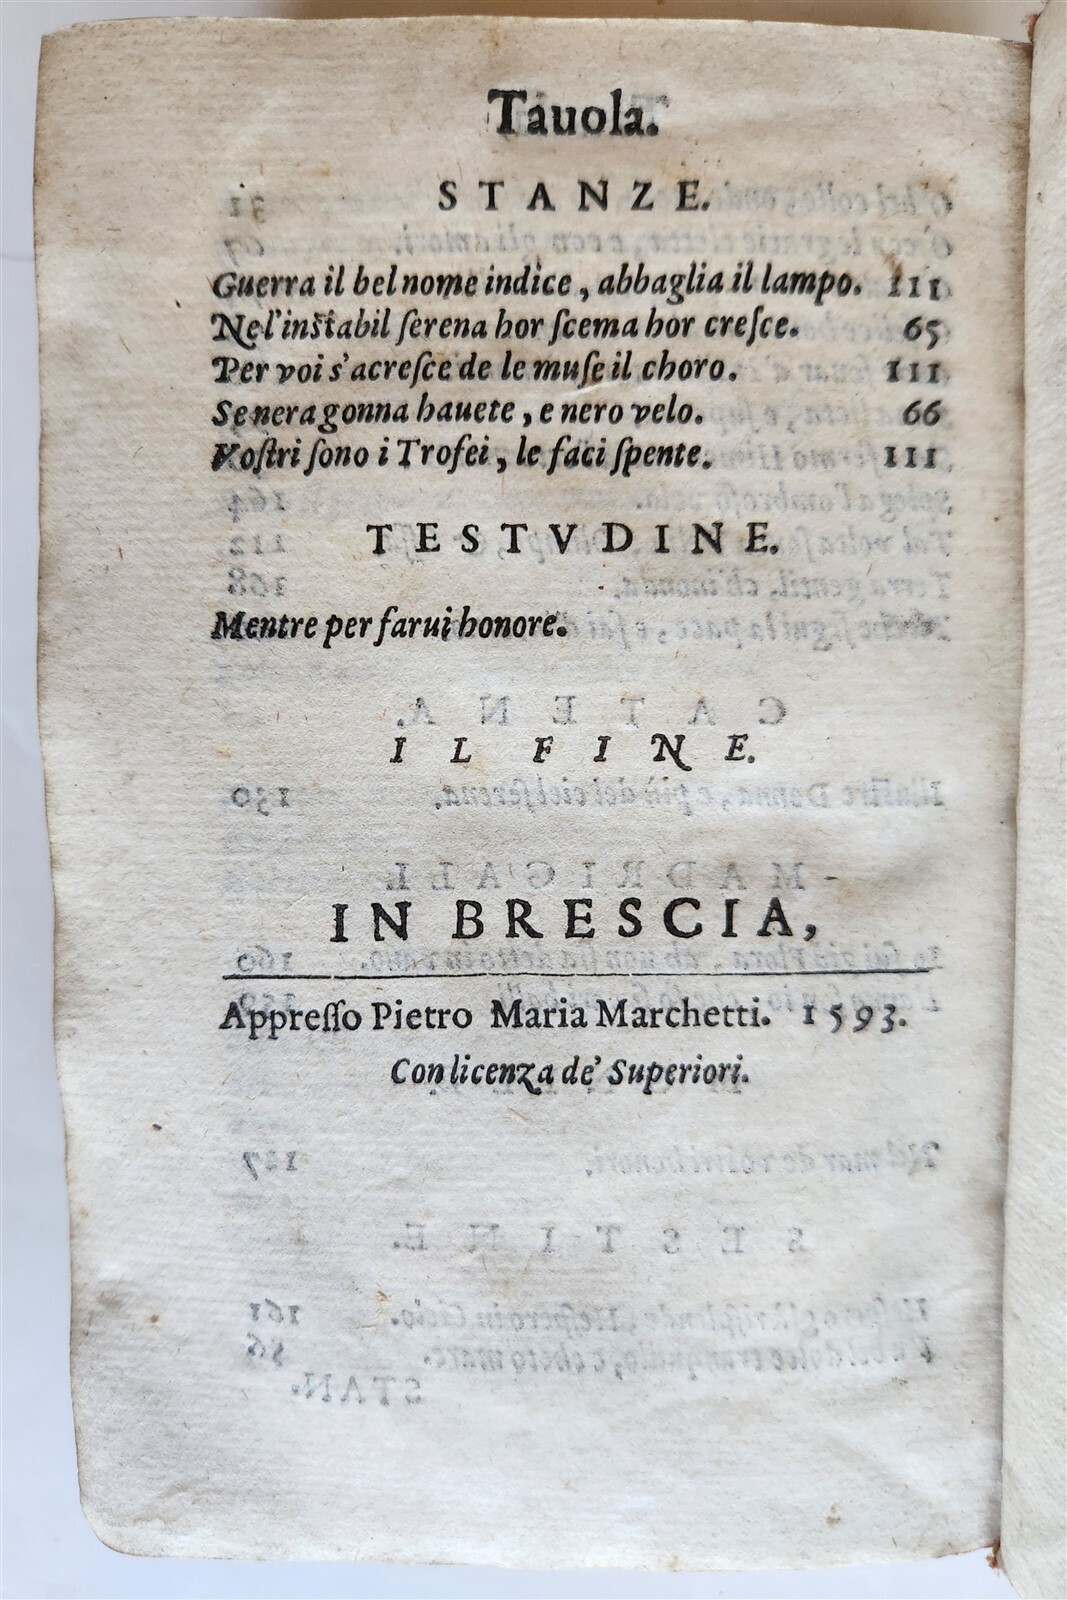 Tauola.
STANZE.
Guerra il bel nome indice, abbaglia il lampo. 111
Ne l'instabil ſerena hor ſcema hor creſce. 65
Per voi s'acreſce de le muſe il choro. 111
Se nera gonna hauete, e nero velo. 66
Voſtri ſono i Trofei, le faci ſpente. 111
TESTVDINE.
Mentre per farui honore.
IL FINE.
IN BRESCIA,
Appreſſo Pietro Maria Marchetti. 1593.
Con licenza de' Superiori.